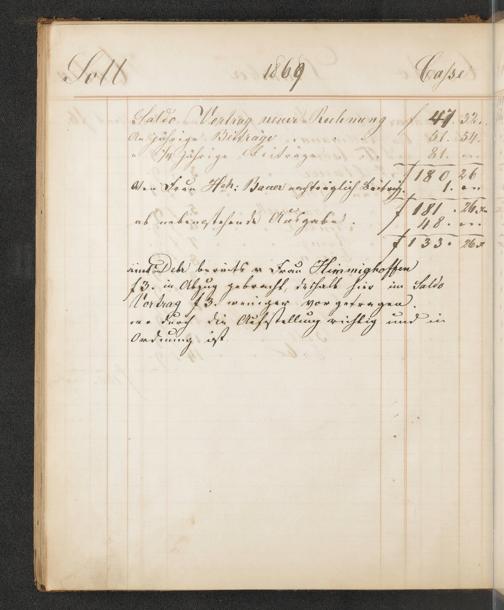 Soll 1869 Casse
Saldo Vortrag neuer Rechnung f 47 32.
jährige Beiträge 51. 54.
" jährige Beiträge 81. "
f 180 26
Von Frau Hch: Bauer nachträglich Beitrag. 1. "
f 181. 26
ab nebenstehende Ausgabe. 48. "
f 133. 26
bereits v Frau Himmighoffen
f 3. in Abzug gebracht, deshalb hier im Saldo
Vortrag f 3. weniger vorgetragen.
durch die Aufstellung richtig und in
Ordnung ist.